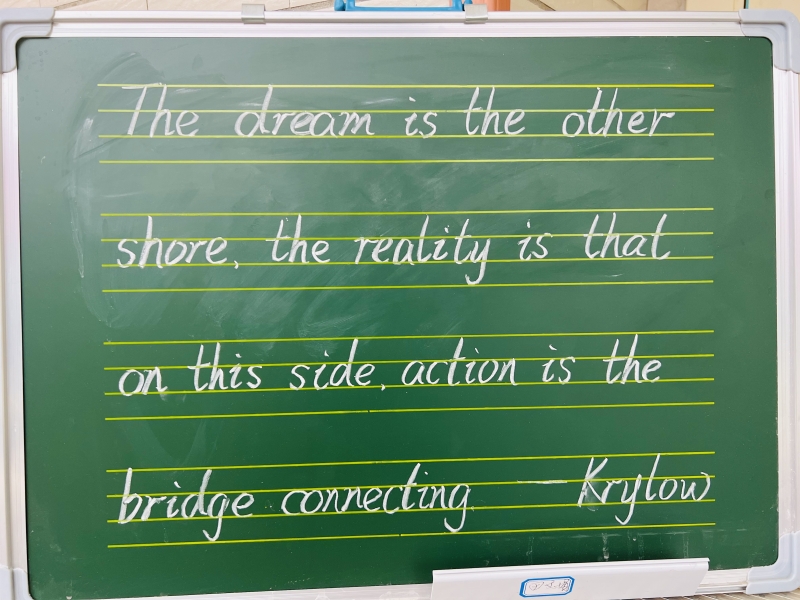 The dream is the other
shore, the reality is that
on this side, action is the
bridge connecting — Krylow